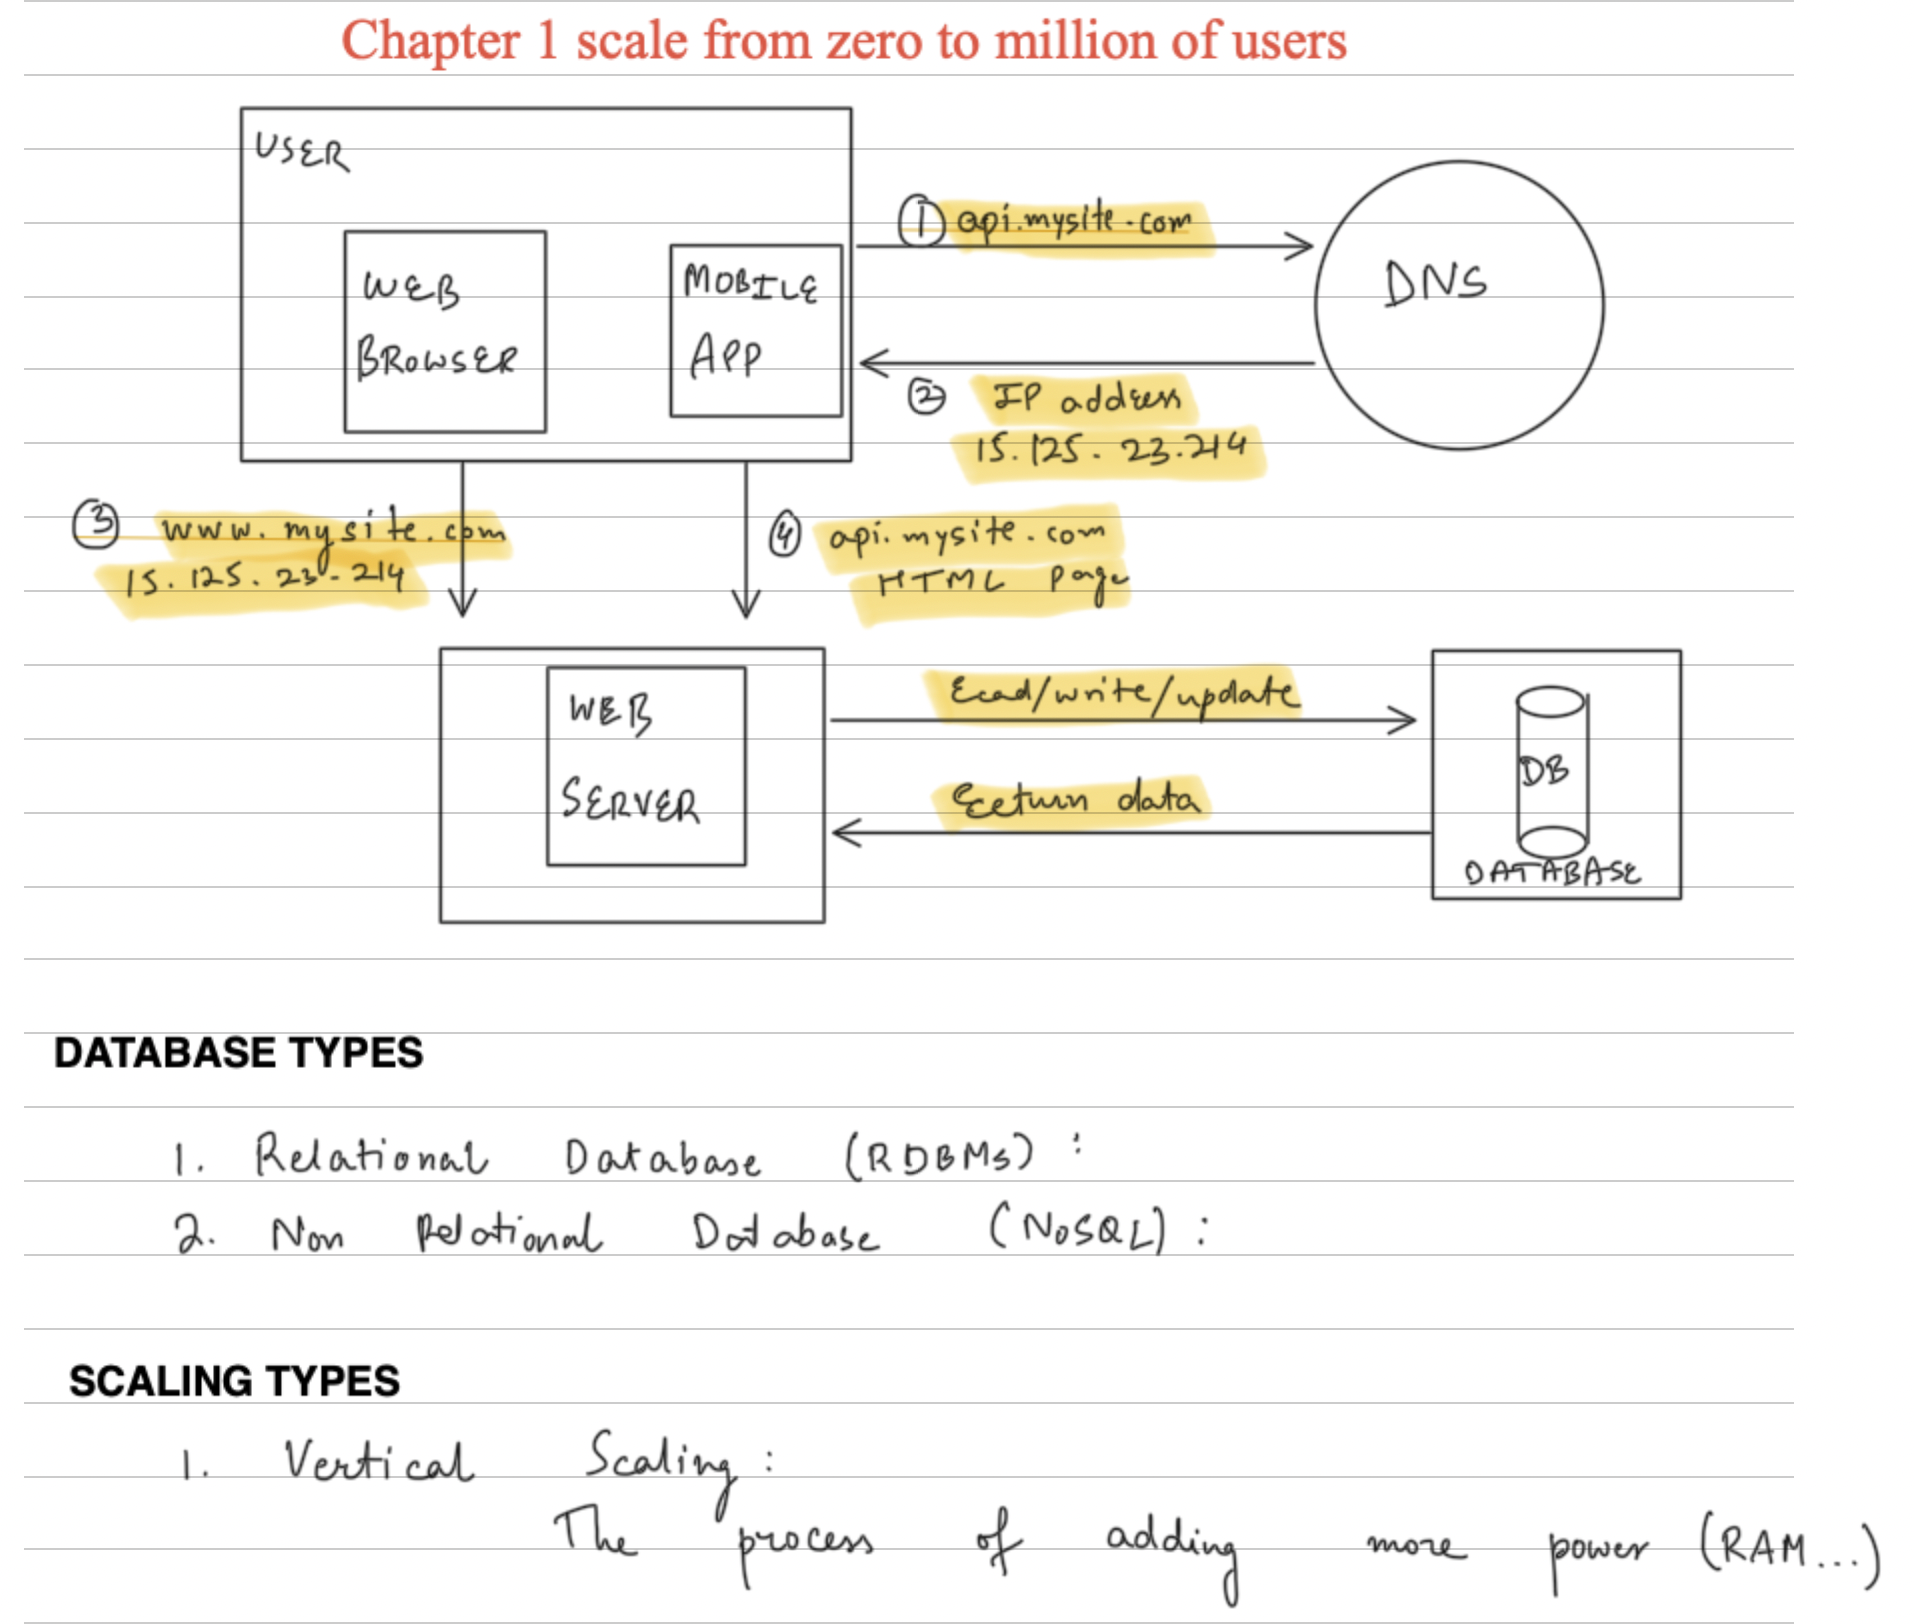 Chapter 1 scale from zero to million of users
USER
WEB
BROWSER
MOBILE
APP
① api.mysite.com
DNS
② IP address
15.125.23.214
③ www.mysite.com
15.125.23.214
④ api.mysite.com
HTML page
WEB
SERVER
Read/write/update
Return data
DB
DATABASE
DATABASE TYPES
1. Relational Database (RDBMS) :
2. Non Relational Database (NoSQL) :
SCALING TYPES
1. Vertical Scaling :
The process of adding more power (RAM...)